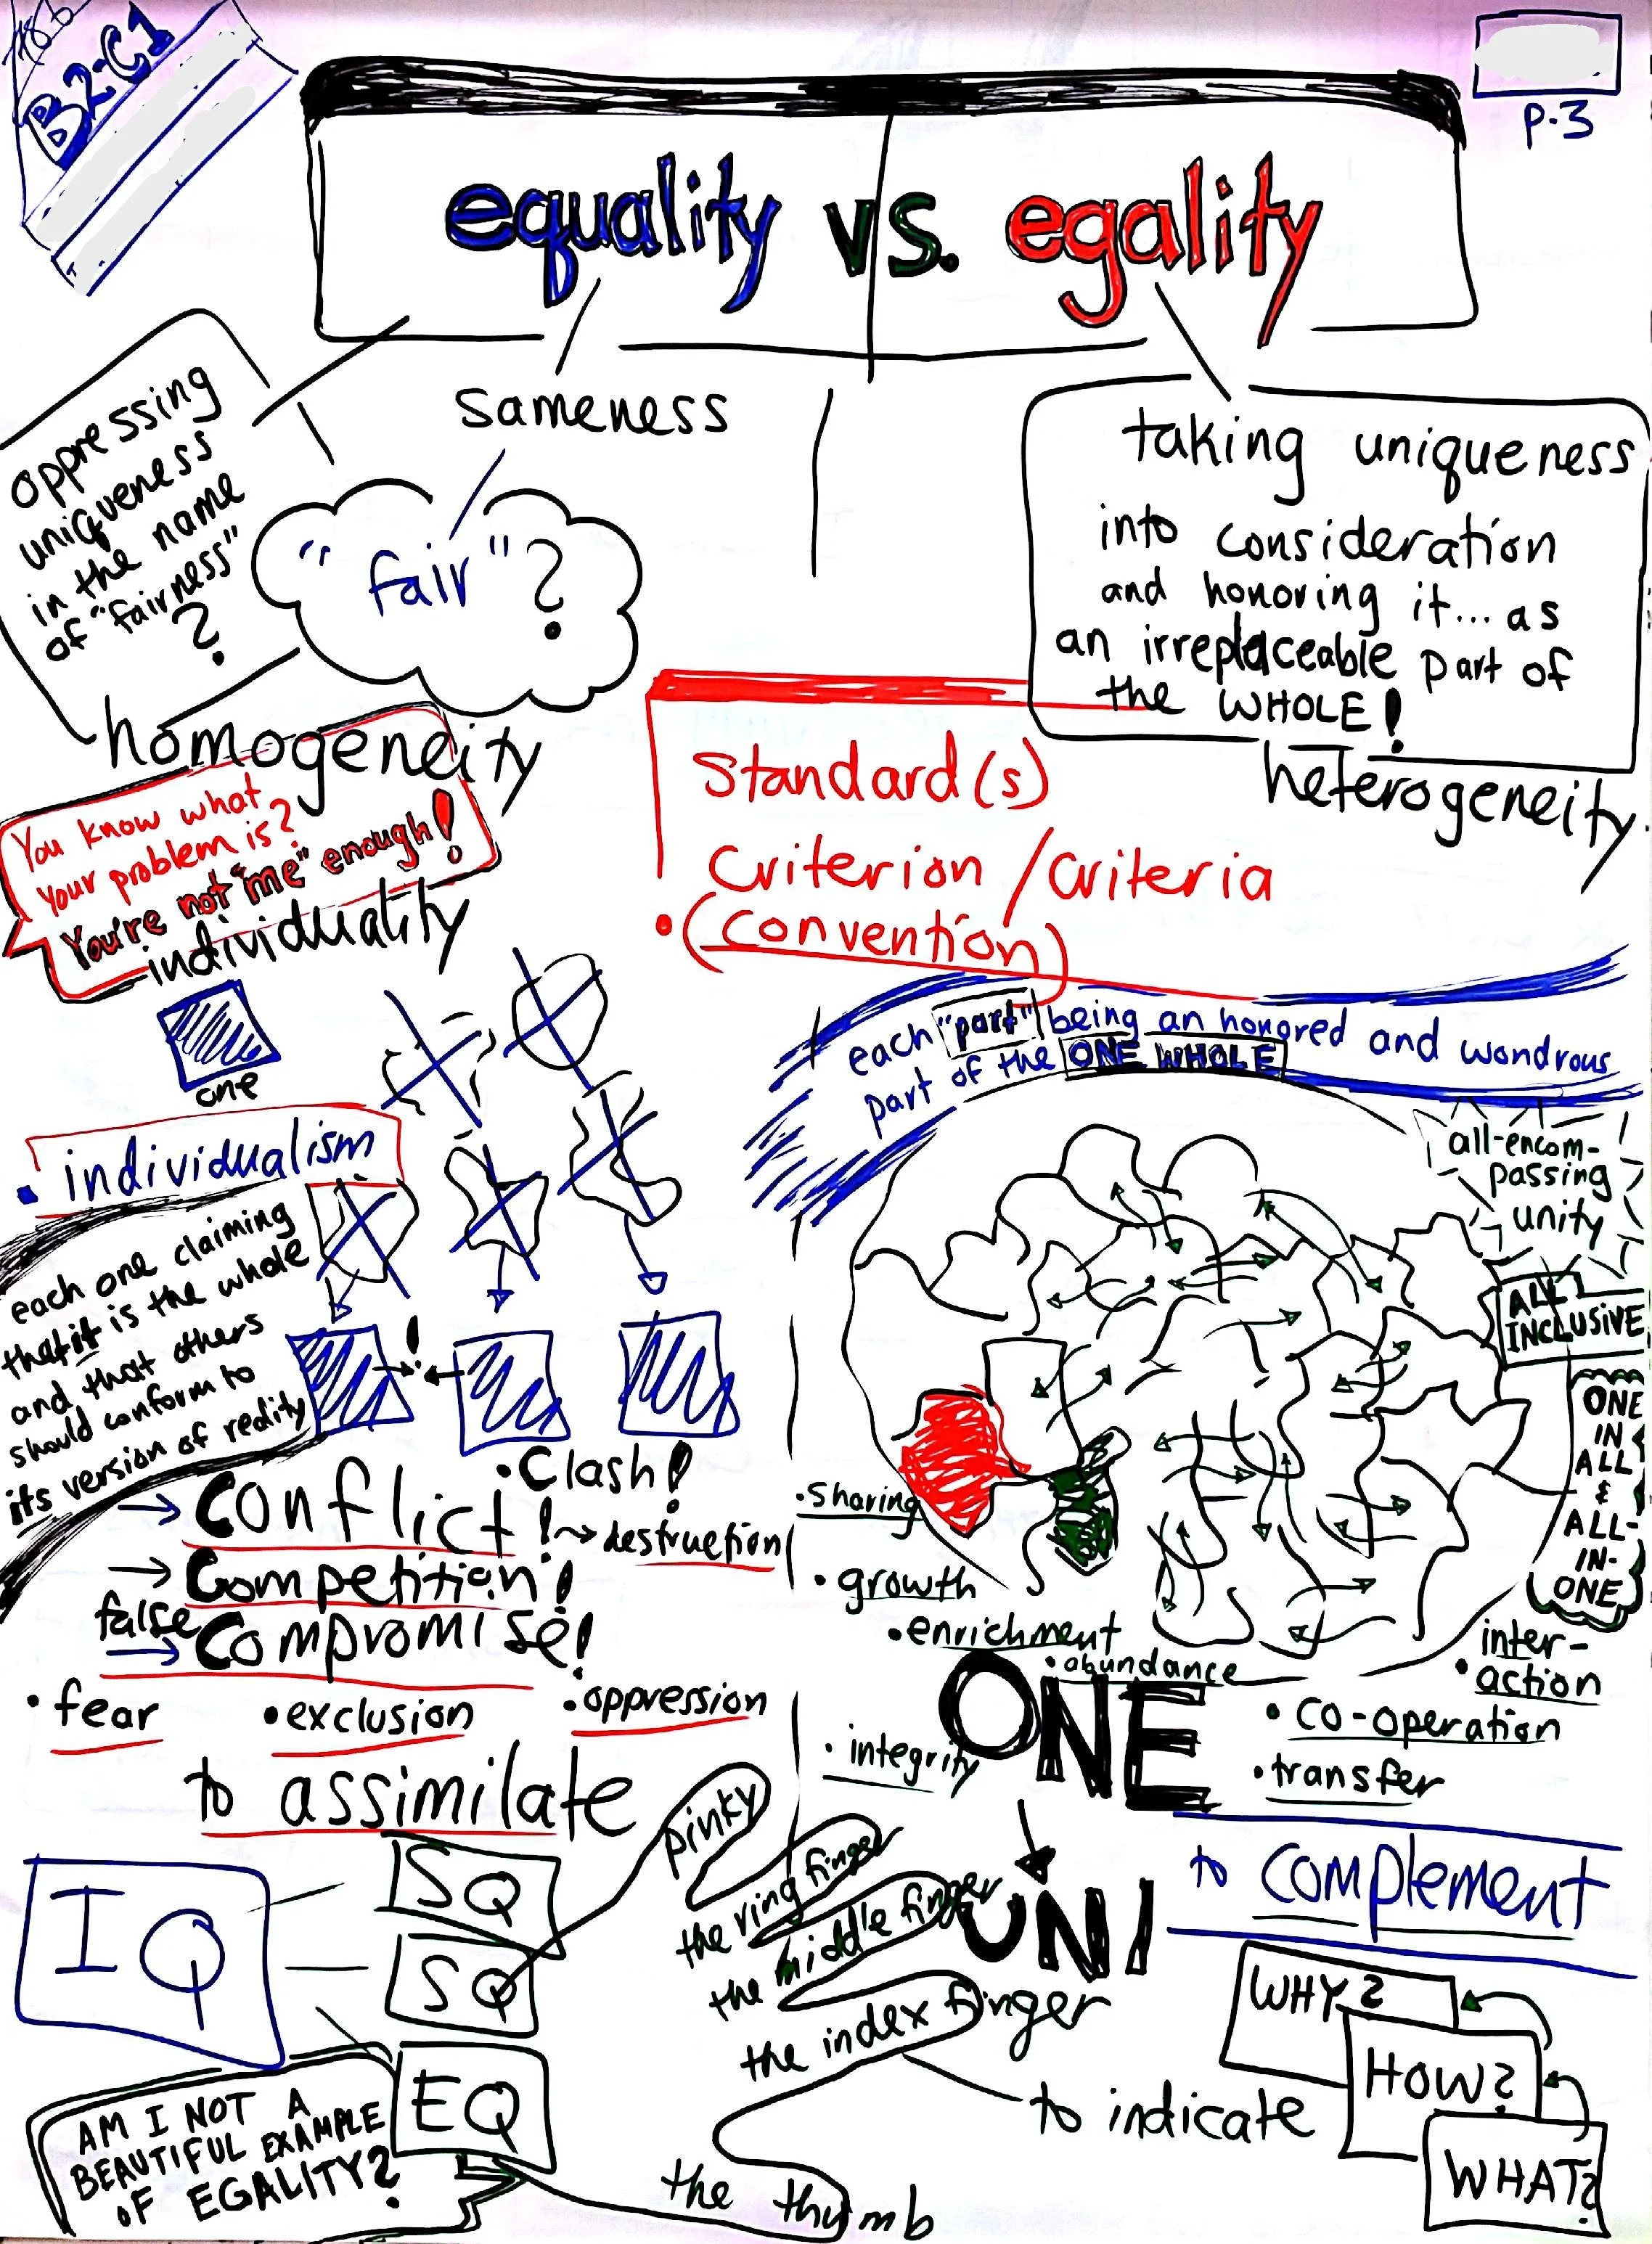 B2-C1
P.3
equality vs. egality
sameness
oppressing
uniqueness
in the name
of "fairness"
?
"fair"?
homogeneity
taking uniqueness
into consideration
and honoring it... as
an irreplaceable part of
the WHOLE!
heterogeneity
Standard(s)
Criterion / Criteria
• (convention)
You know what
your problem is?
You're not "me" enough!
individuality
one
• individualism
each one claiming
that it is the whole
and that others
should conform to
its version of reality
!
• Clash!
→ conflict! → destruction
→ Competition!
false
→ compromise!
• fear
• exclusion
• oppression
to assimilate
each "part" being an honored and wondrous
part of the ONE WHOLE
all-encom-
passing
unity
ALL
INCLUSIVE
ONE
IN
ALL
&
ALL-
IN-
ONE
• Sharing
• growth
• enrichment
• abundance
inter-
• action
• co-operation
• transfer
• integrity
ONE
UNI
to complement
IQ
SQ
SQ
EQ
pinky
the ring finger
the middle finger
the index finger
the thumb
to indicate
WHY?
HOW?
WHAT?
AM I NOT A
BEAUTIFUL EXAMPLE
OF EGALITY?